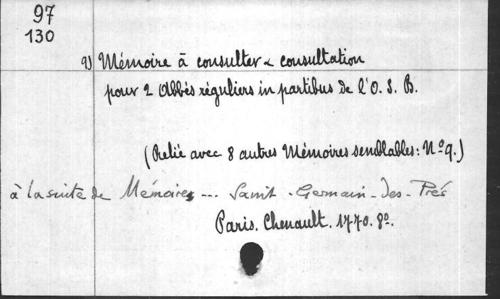 97
130
v) Mémoire à consulter & consultation
pour 2 Abbés réguliers in partibus de l'O. S. B.
(Relié avec 8 autres Mémoires semblables: Nº 9.)
à la suite de Mémoires --- Saint-Germain-des-Prés
Paris. Chenault. 1770. 8º.